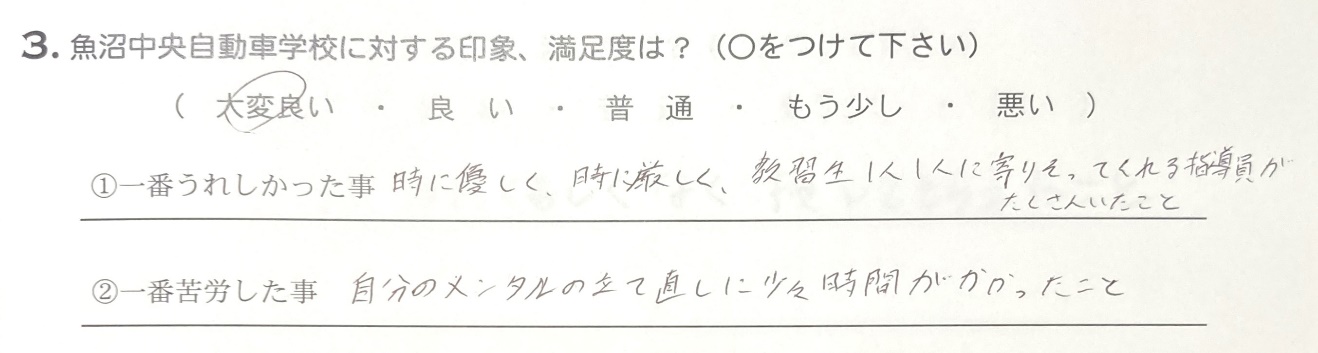 3. 魚沼中央自動車学校に対する印象、満足度は？（〇をつけて下さい）
（　大変良い　・　良　い　・　普　通　・　もう少し　・　悪い　）
①一番うれしかった事 時に優しく、時に厳しく、教習生1人1人に寄りそってくれる指導員が
たくさんいたこと
②一番苦労した事 自分のメンタルの立て直しに少々時間がかかったこと